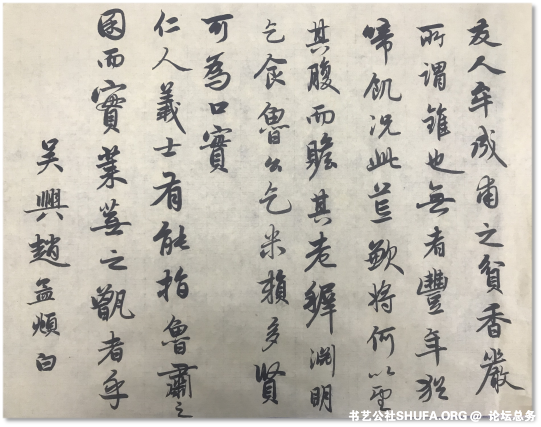 友人奔成甫之貧香嚴
所謂錐也無者豐年猶
啼飢況此荒歉將何以聖
其腹而贍其老穉淵明
乞食魯公乞米賴多賢
可為口實
仁人義士有能指魯肅之
囷而實業蓋之甑者乎
吴興趙孟頫白
书艺公社SHUFA.ORG @ 论坛总务